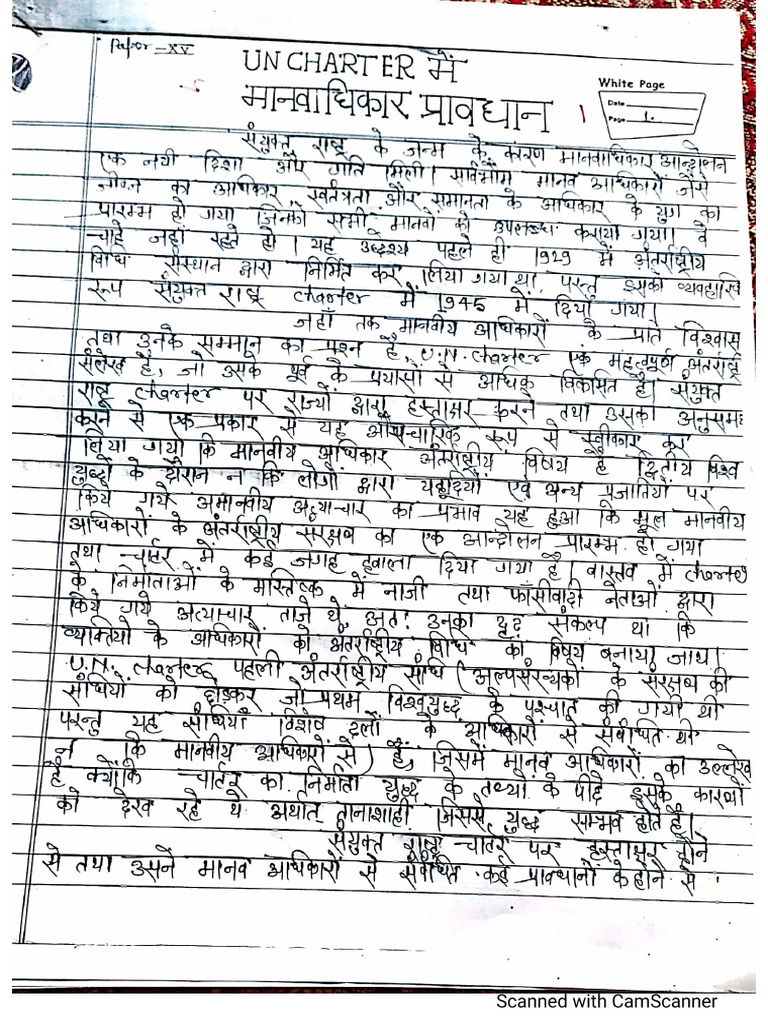 Paper - XV
UN CHARTER में
मानवाधिकार प्रावधान
White Page
Date
Page 1.
संयुक्त राष्ट्र के जन्म के कारण मानवाधिकार आन्दोलन
एक नयी दिशा और गति मिली। सार्वभौम मानव अधिकारों जैसे
का अधिकार, स्वतंत्रता और समानता के अधिकार के युग का
प्रारम्भ हो गया जिनको सभी मानवो को उपलब्ध कराया गया। वे
चाहे जहाँ रहते हो। यह उद्देश्य पहले ही 1929 में अंतर्राष्ट्रीय
विधि संस्थान द्वारा निर्मित कर लिया गया था, परन्तु इसको व्यवहारि
रूप संयुक्त राष्ट्र charter में 1945 में दिया गया।
जहाँ तक मानवीय अधिकारों के प्रति विश्वास
तथा उनके सम्मान का प्रश्न है, U.N. charter एक महत्वपूर्ण अंतर्राष्ट्री
संलेख है, जो उसके पूर्व के प्रयासों से अधिक विकसित है। संयुक्त
राष्ट्र charter पर राज्यों द्वारा हस्ताक्षर करने तथा उसका अनुसम
करने से एक प्रकार से यह औपचारिक रूप से स्वीकार कर
लिया गया कि मानवीय अधिकार अंतर्राष्ट्रीय विषय है द्वितीय विश्व
युद्धों के दौरान न कि लोगों द्वारा यहूदियों एवं अन्य प्रजातियों पर
किये गये अमानवीय अत्याचार का प्रभाव यह हुआ कि मूल मानवीय
अधिकारों के अंतर्राष्ट्रीय संरक्षण का एक आन्दोलन प्रारम्भ हो गया
तथा चार्टर में कई जगह हवाला दिया गया है। वास्तव में charter
के निर्माताओं के मस्तिष्क में नाजी तथा फाँसीवादी नेताओं द्वारा
किये गये अत्याचार ताजे थे, अतः उनका दृढ़ संकल्प था कि
व्यक्तियो के अधिकारों को अंतर्राष्ट्रीय विधि का विषय बनाया जाय।
U.N. charter पहली अंतर्राष्ट्रीय संधि (अल्पसंख्यको के संरक्षण की
संधियों को छोड़कर जो प्रथम विश्वयुद्ध के पश्चात की गयी थी
परन्तु यह संधियाँ विशेष दलों के अधिकारों से संबंधित थी
न कि मानवीय अधिकारों से) है, जिसमें मानव अधिकारों का उल्लेख
है क्योंकि चार्टर का निर्माता युद्ध के तथ्यो के पीछे इसके कारणों
को देख रहे थे अर्थात् तानाशाही जिससे युद्ध सम्भव होते है।
संयुक्त राष्ट्र चार्टर पर हस्ताक्षर होने
से तथा उसने मानव अधिकारों से संबंधित कई प्रावधानों के होने से
Scanned with CamScanner